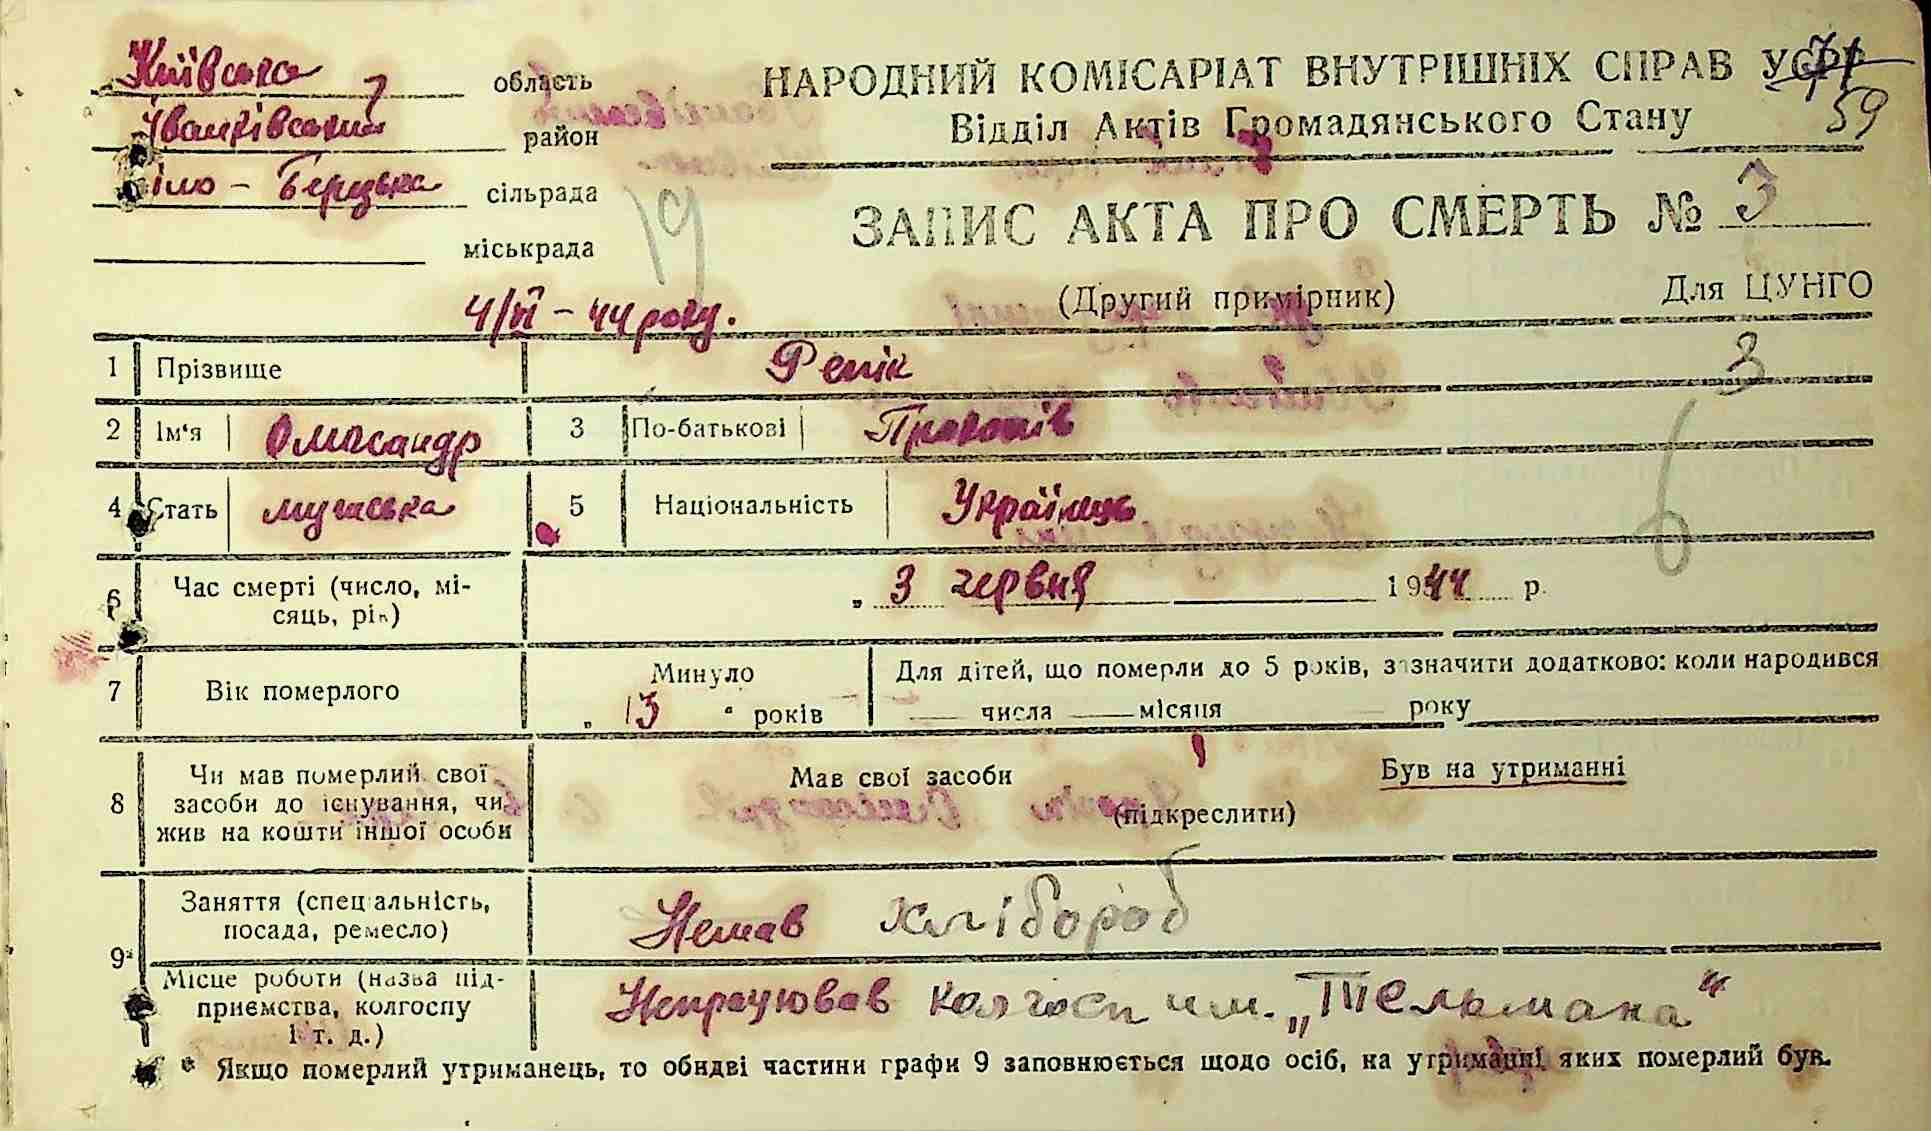 Київська область
Іванківський район
Біло - Берецька сільрада
міськрада
НАРОДНИЙ КОМІСАРІАТ ВНУТРІШНІХ СПРАВ УСРР
Відділ Актів Громадянського Стану
59
19
ЗАПИС АКТА ПРО СМЕРТЬ № 3
(Другий примірник) Для ЦУНГО
4/VI - 44 року.
1 Прізвище Репік 3
2 Ім'я Олександр 3 По-батькові Прокопів
4 Стать мужська 5 Національність Українець
6
6 Час смерті (число, мі-
сяць, рік) „ 3 червня 1944 р.
7 Вік померлого Минуло „ 13 “ років
Для дітей, що померли до 5 років, зазначити додатково: коли народився
— числа — місяця року
8 Чи мав померлий свої
засоби до існування, чи
жив на кошти іншої особи
Мав свої засоби Був на утриманні
(підкреслити)
9* Заняття (спеціальність,
посада, ремесло) Немав хлібороб
Місце роботи (назва під-
приємства, колгоспу
і т. д.) Непрацював колгосп им. „Тельмана"
* Якщо померлий утриманець, то обидві частини графи 9 заповнюється щодо осіб, на утриманні яких померлий був.